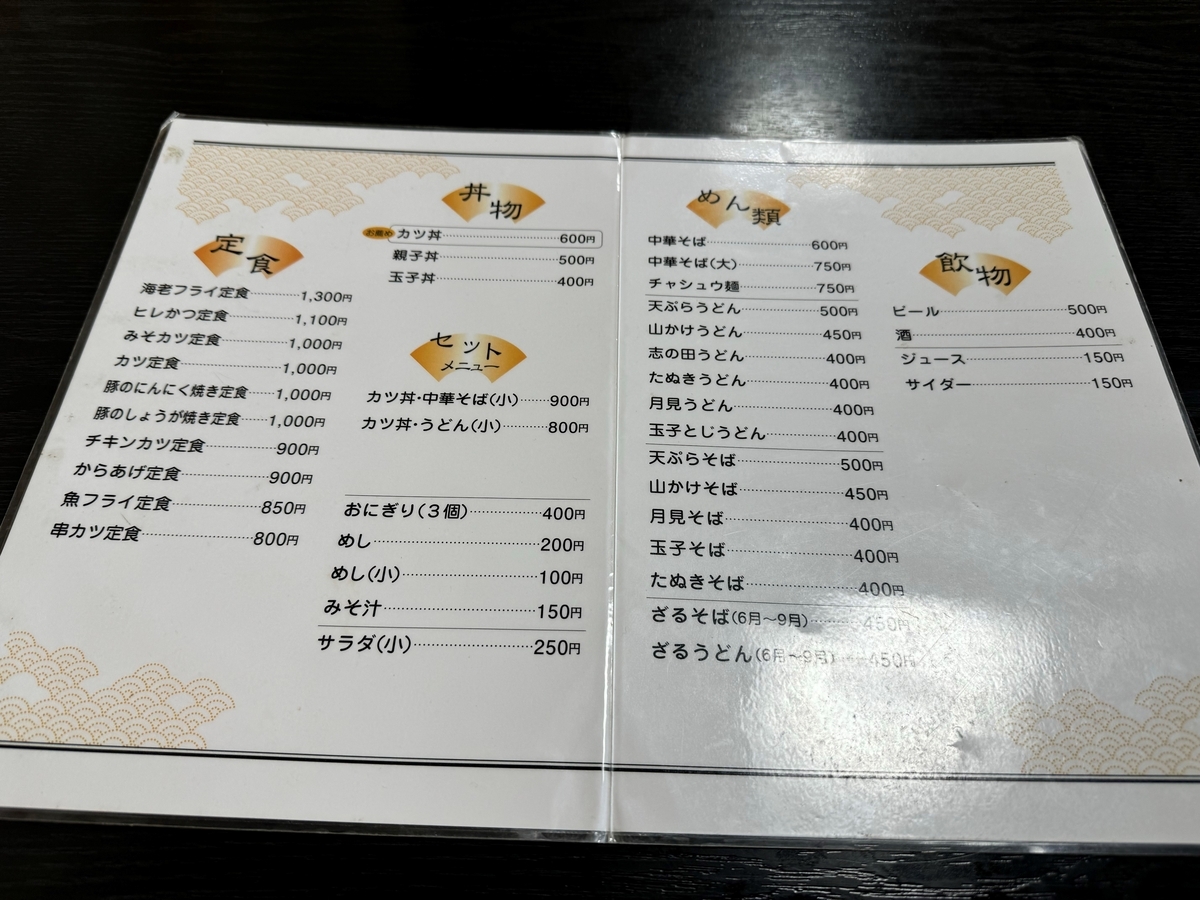 定食
海老フライ定食 1,300円
ヒレかつ定食 1,100円
みそカツ定食 1,000円
カツ定食 1,000円
豚のにんにく焼き定食 1,000円
豚のしょうが焼き定食 1,000円
チキンカツ定食 900円
からあげ定食 900円
魚フライ定食 850円
串カツ定食 800円
丼物
お薦め カツ丼 600円
親子丼 500円
玉子丼 400円
セット
メニュー
カツ丼・中華そば(小) 900円
カツ丼・うどん(小) 800円
おにぎり(3個) 400円
めし 200円
めし(小) 100円
みそ汁 150円
サラダ(小) 250円
めん類
中華そば 600円
中華そば(大) 750円
チャシュウ麺 750円
天ぷらうどん 500円
山かけうどん 450円
志の田うどん 400円
たぬきうどん 400円
月見うどん 400円
玉子とじうどん 400円
天ぷらそば 500円
山かけそば 450円
月見そば 400円
玉子そば 400円
たぬきそば 400円
ざるそば(6月〜9月) 450円
ざるうどん(6月〜9月) 450円
飲物
ビール 500円
酒 400円
ジュース 150円
サイダー 150円